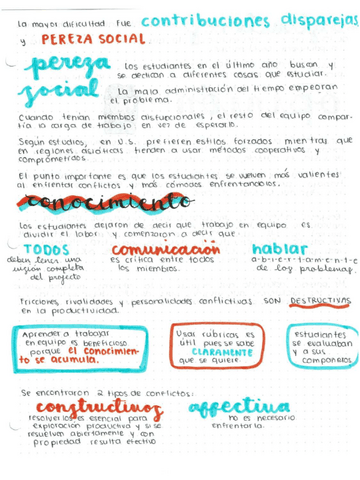 La mayor dificultad fue contribuciones disparejas
y PEREZA SOCIAL
pereza social
Los estudiantes en el último año buscan y
se dedican a diferentes cosas que estudiar.
La mala administración del tiempo empeoran
el problema.
Cuando tenían miembros disfuncionales, el resto del equipo compar-
tía la carga de trabajo en vez de esperarlo.
Según estudios, en U.S. prefieren estilos forzados mientras que
en regiones asiáticas tienden a usar métodos cooperativos y
comprometidos.
El punto importante es que los estudiantes se vuelven más valientes
al enfrentar conflictos y más cómodos enfrentandolos.
conocimiento
Los estudiantes dejaron de decir que trabajo en equipo es
dividir el labor y comenzaron a decir que:
TODOS
deben tener una
visión completa
del proyecto
comunicación
es crítica entre todos
los miembros.
hablar
a-b-i-e-r-t-a-m-e-n-t-e
de los problemas.
Fricciones rivalidades y personalidades conflictivas SON DESTRUCTIVAS
en la productividad.
Aprender a trabajar
en equipo es beneficioso
porque el conocimien-
to se acumula.
Usar rúbricas es
útil pues se sabe
CLARAMENTE
que se quiere
estudiantes
se evaluaban
y a sus
compañeros
Se encontraron 2 tipos de conflictos:
constructivos
resolverlos es esencial para
explotación productiva y si se
resuelven abiertamente y con
propiedad resulta efectivo
affectiva
no es necesario
enfrentarla.